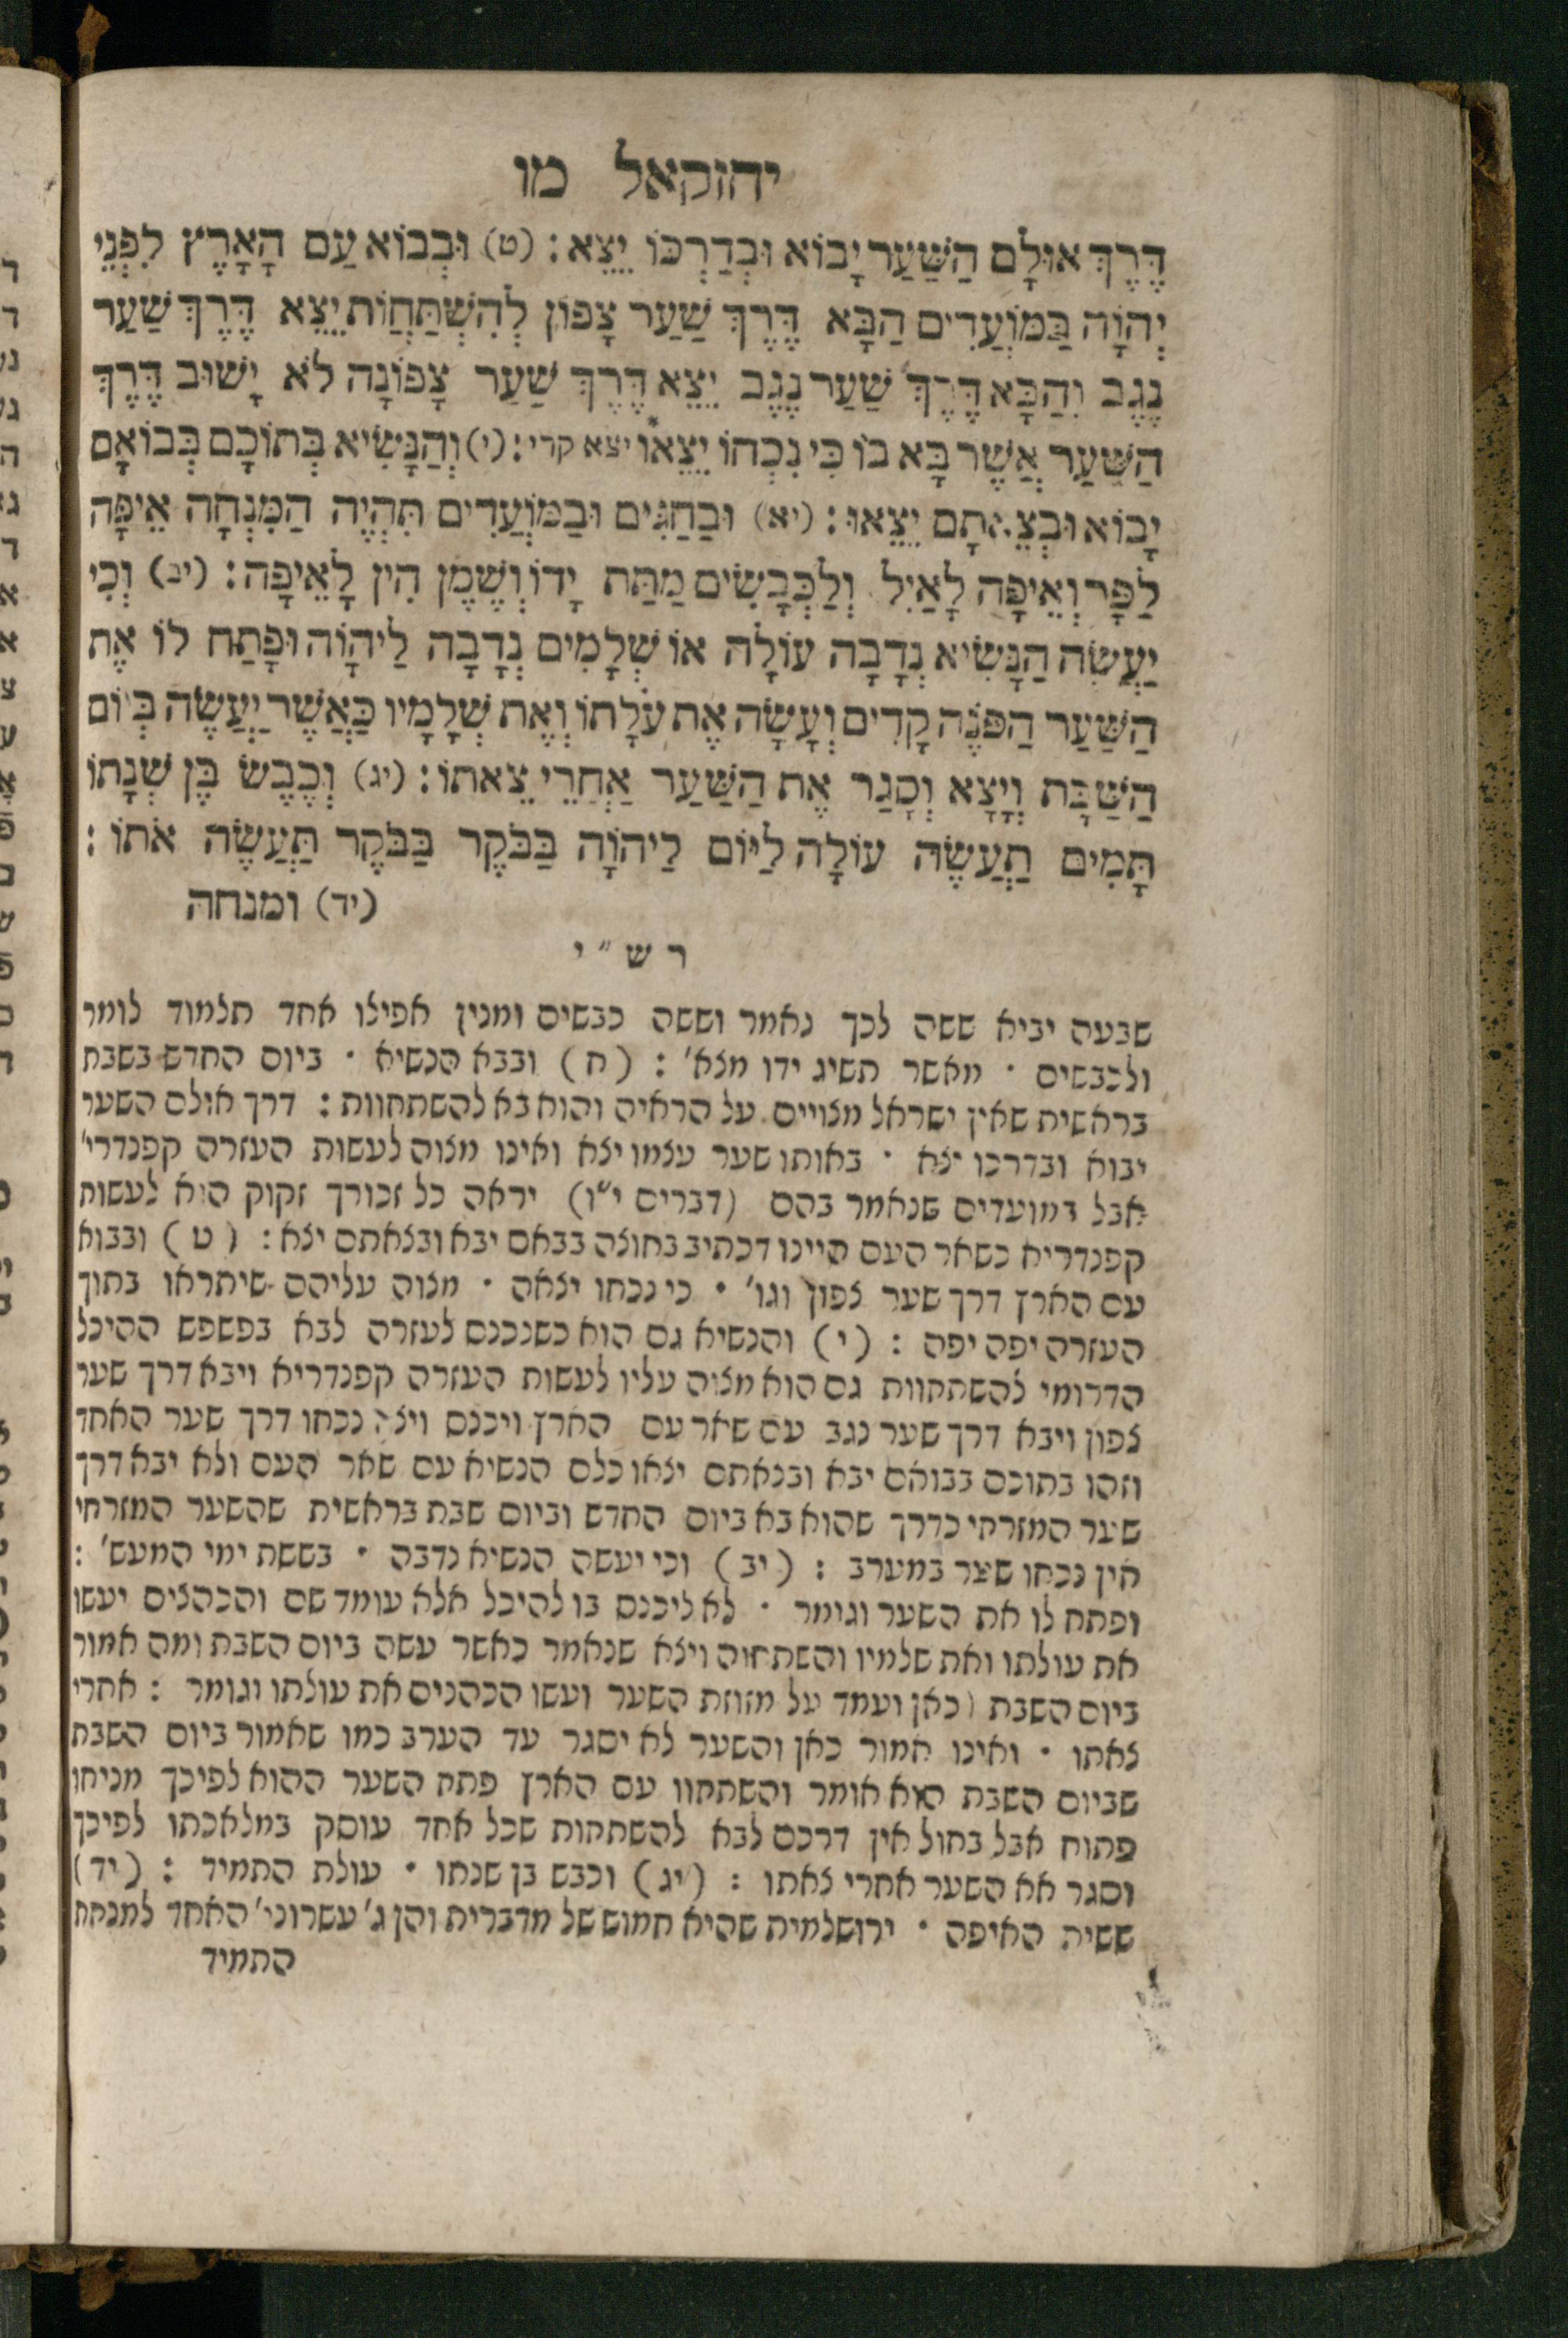 יהזקאל מו
דֶּרֶךְ אוּלָם הַשַּׁעַר יָבוֹא וּבְדַרְכּוֹ יֵצֵא: (ט) וּבְבוֹא עַם הָאָרֶץ לִפְנֵי
יְהוָֹה בַּמּוֹעֲדִים הַבָּא דֶּרֶךְ שַׁעַר צָפוֹן לְהִשְׁתַּחֲוֹת יֵצֵא דֶּרֶךְ שַׁעַר
נֶגֶב וְהַבָּא דֶּרֶךְ שַׁעַר נֶגֶב יֵצֵא דֶּרֶךְ שַׁעַר צָפוֹנָה לֹא יָשׁוּב דֶּרֶךְ
הַשַּׁעַר אֲשֶׁר בָּא בוֹ כִּי נִכְחוֹ יֵצֵאוּ* יצא קרי: (י) וְהַנָּשִׂיא בְּתוֹכָם בְּבוֹאָם
יָבוֹא וּבְצֵאתָם יֵצֵאוּ: (יא) וּבַחַגִּים וּבַמּוֹעֲדִים תִּהְיֶה הַמִּנְחָה אֵיפָה
לַפָּר וְאֵיפָה לָאַיִל וְלַכְּבָשִׂים מַתַּת יָדוֹ וְשֶׁמֶן הִין לָאֵיפָה: (יב) וְכִי
יַעֲשֶׂה הַנָּשִׂיא נְדָבָה עוֹלָה אוֹ שְׁלָמִים נְדָבָה לַיהוָֹה וּפָתַח לוֹ אֶת
הַשַּׁעַר הַפֹּנֶה קָדִים וְעָשָׂה אֶת עֹלָתוֹ וְאֶת שְׁלָמָיו כַּאֲשֶׁר יַעֲשֶׂה בְּיוֹם
הַשַּׁבָּת וְיָצָא וְסָגַר אֶת הַשַּׁעַר אַחֲרֵי צֵאתוֹ: (יג) וְכֶבֶשׂ בֶּן שְׁנָתוֹ
תָּמִים תַּעֲשֶׂה עוֹלָה לַיּוֹם לַיהוָֹה בַּבֹּקֶר בַּבֹּקֶר תַּעֲשֶׂה אֹתוֹ:
(יד) ומנחה
ר ש״י
שבעה יביא ששה לכך נאמר וששה כבשים ומנין אפילו אחד תלמוד לומר
ולכבשים · מאשר תשיג ידו מצא׳ : (ח) ובבא הנשיא · ביום החדש בשבת
בראשית שאין ישראל מצויים על הראיה והוא בא להשתחוות : דרך אולם השער
יבוא ובדרכו יצא · באותו שער עצמו יצא ואינו מצוה לעשות העזרה קפנדרי׳
אבל במועדים שנאמר בהם (דברים י״ו) יראה כל זכורך זקוק הוא לעשות
קפנדריא כשאר העם היינו דכתיב בחוצה בבאם יבא ובצאתם יצא : (ט) ובבוא
עם הארץ דרך שער צפון וגו׳ · כי נכחו יצאה · מצוה עליהם שיתראו בתוך
העזרה יפה יפה : (י) והנשיא גם הוא כשנכנס לעזרה לבא בפשפש ההיכל
הדרומי להשתחוות גם הוא מצוה עליו לעשות העזרה קפנדריא ויבא דרך שער
צפון ויבא דרך שער נגב עם שאר עם הארץ ויכנס ויצא נכחו דרך שער האחד
וזהו בתוכם בבואם יבא ובצאתם יצאו כלם הנשיא עם שאר העם ולא יבא דרך
שער המזרחי כדרך שהוא בא ביום החדש וביום שבת בראשית שהשער המזרחי
אין נכחו שצר במערב : (יב) וכי יעשה הנשיא נדבה · בששת ימי המעש׳ :
ופתח לו את השער וגומר · לא ליכנס בו להיכל אלא עומד שם והכהנים יעשו
את עולתו ואת שלמיו והשתחוה ויצא שנאמר כאשר עשה ביום השבת ומה אמור
ביום השבת (כאן ועמד על מזוזת השער ועשו הכהנים את עולתו וגומר : אחרי
צאתו · ואינו אמור כאן והשער לא יסגר עד הערב כמו שאמור ביום השבת
שביום השבת הוא אומר והשתחוו עם הארץ פתח השער ההוא לפיכך מניחו
פתוח אבל בחול אין דרכם לבא להשתחות שכל אחד עוסק במלאכתו לפיכך
וסגר אא השער אחרי צאתו : (יג) וכבש בן שנתו · עולת התמיד : (יד)
ששית האיפה · ירושלמית שהיא חמושש של מדברית והן ג׳ עשרוני׳ האחד למנחת
התמיד